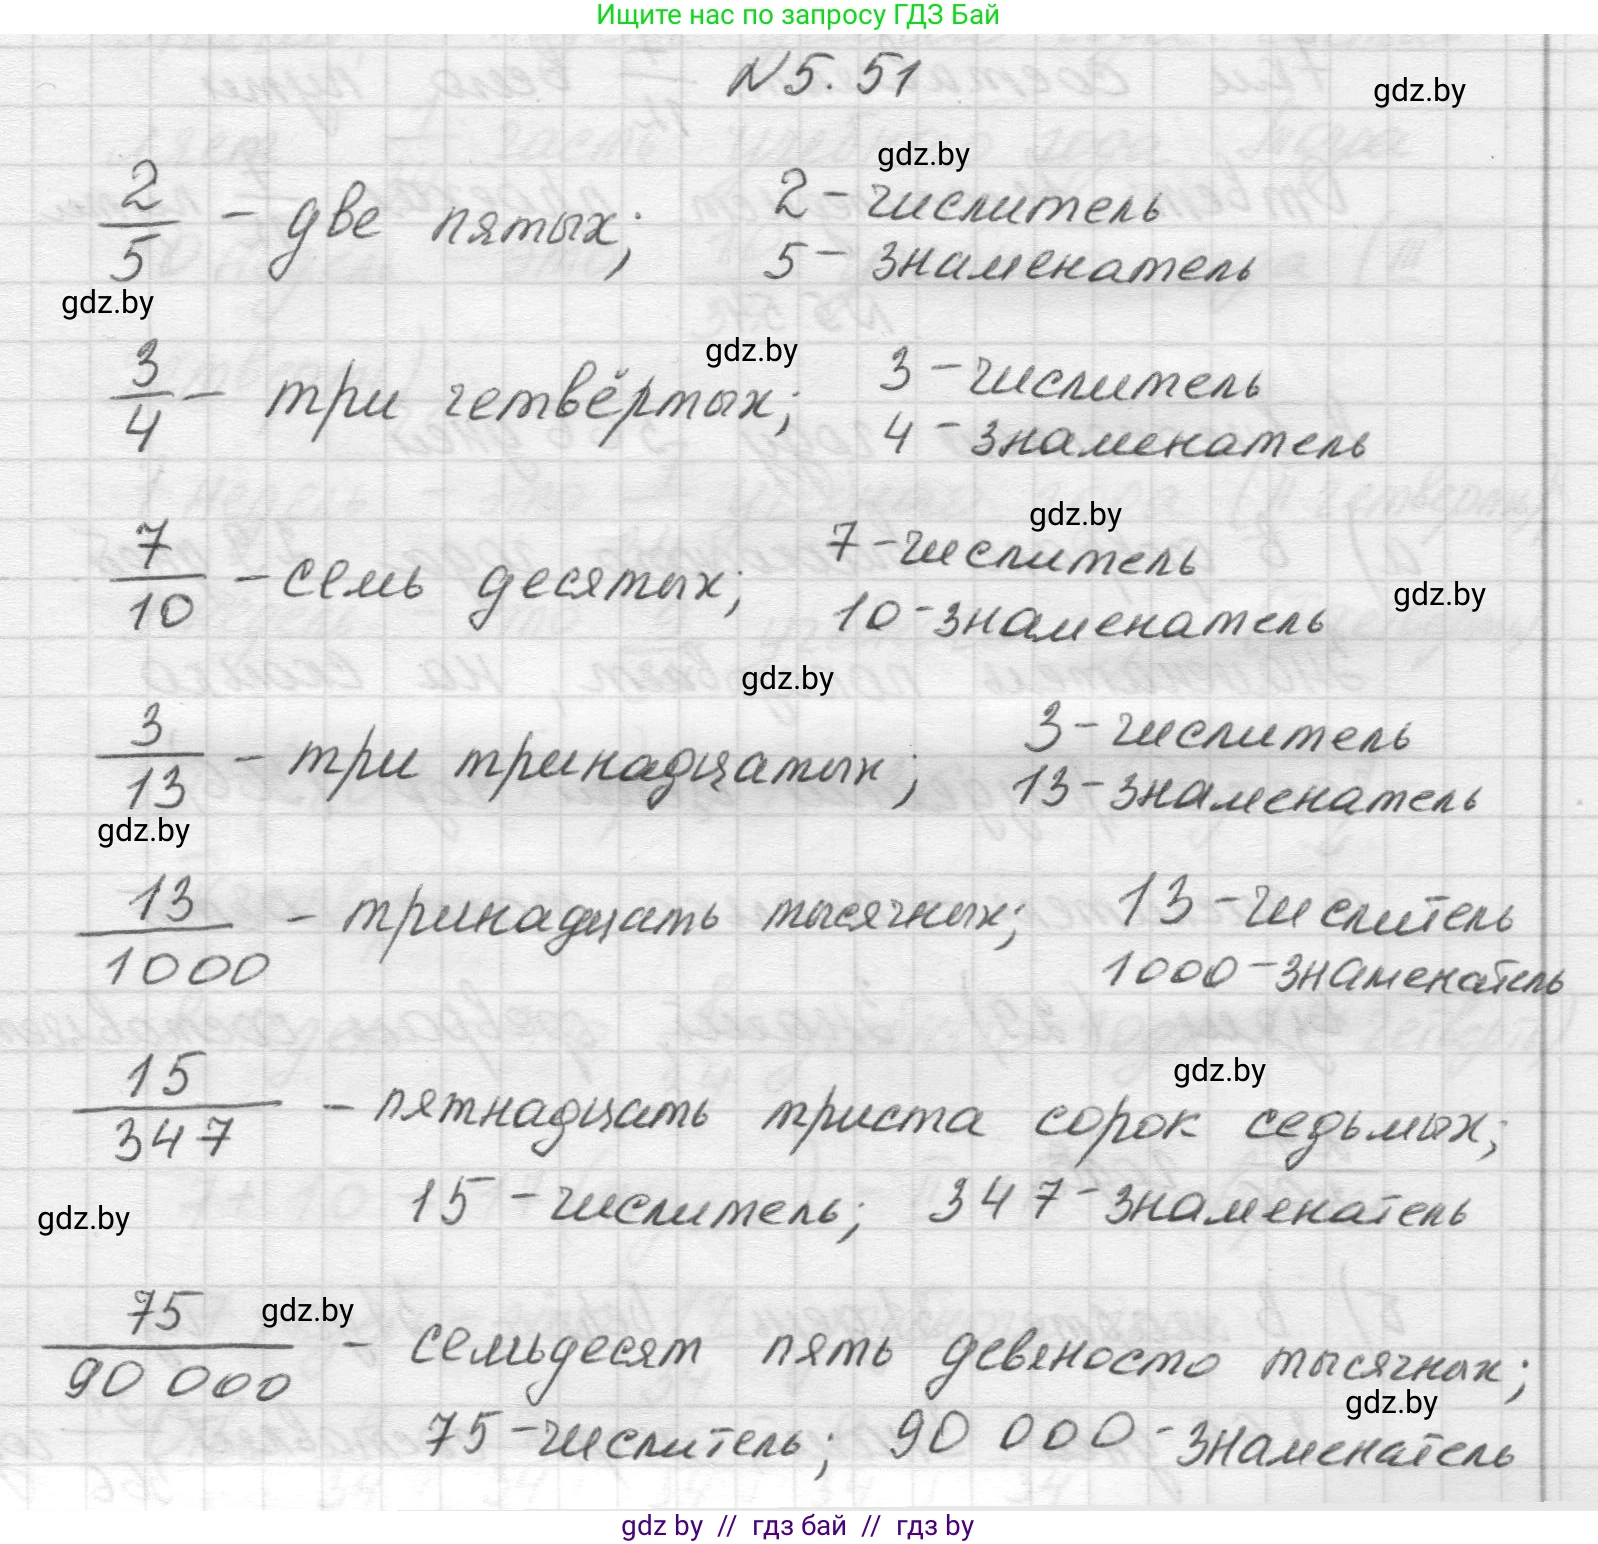 Ищите нас по запросу ГДЗ Бай
N 5. 51
gdz.by
gdz.by
2/5 - две пятых; 2 - числитель
5 - знаменатель
gdz.by
gdz.by
3/4 - три четвёртых; 3 - числитель
4 - знаменатель
gdz.by
7/10 - семь десятых; 7 - числитель
10 - знаменатель
gdz.by
gdz.by
3/13 - три тринадцатых; 3 - числитель
13 - знаменатель
gdz.by
13/1000 - тринадцать тысячных; 13 - числитель
1000 - знаменатель
gdz.by
15/347 - пятнадцать триста сорок седьмых;
15 - числитель; 347 - знаменатель
gdz.by
gdz.by
75/90 000 - семьдесят пять девяносто тысячных;
gdz.by
75 - числитель; 90 000 - знаменатель
gdz by // гдз бай // гдз by